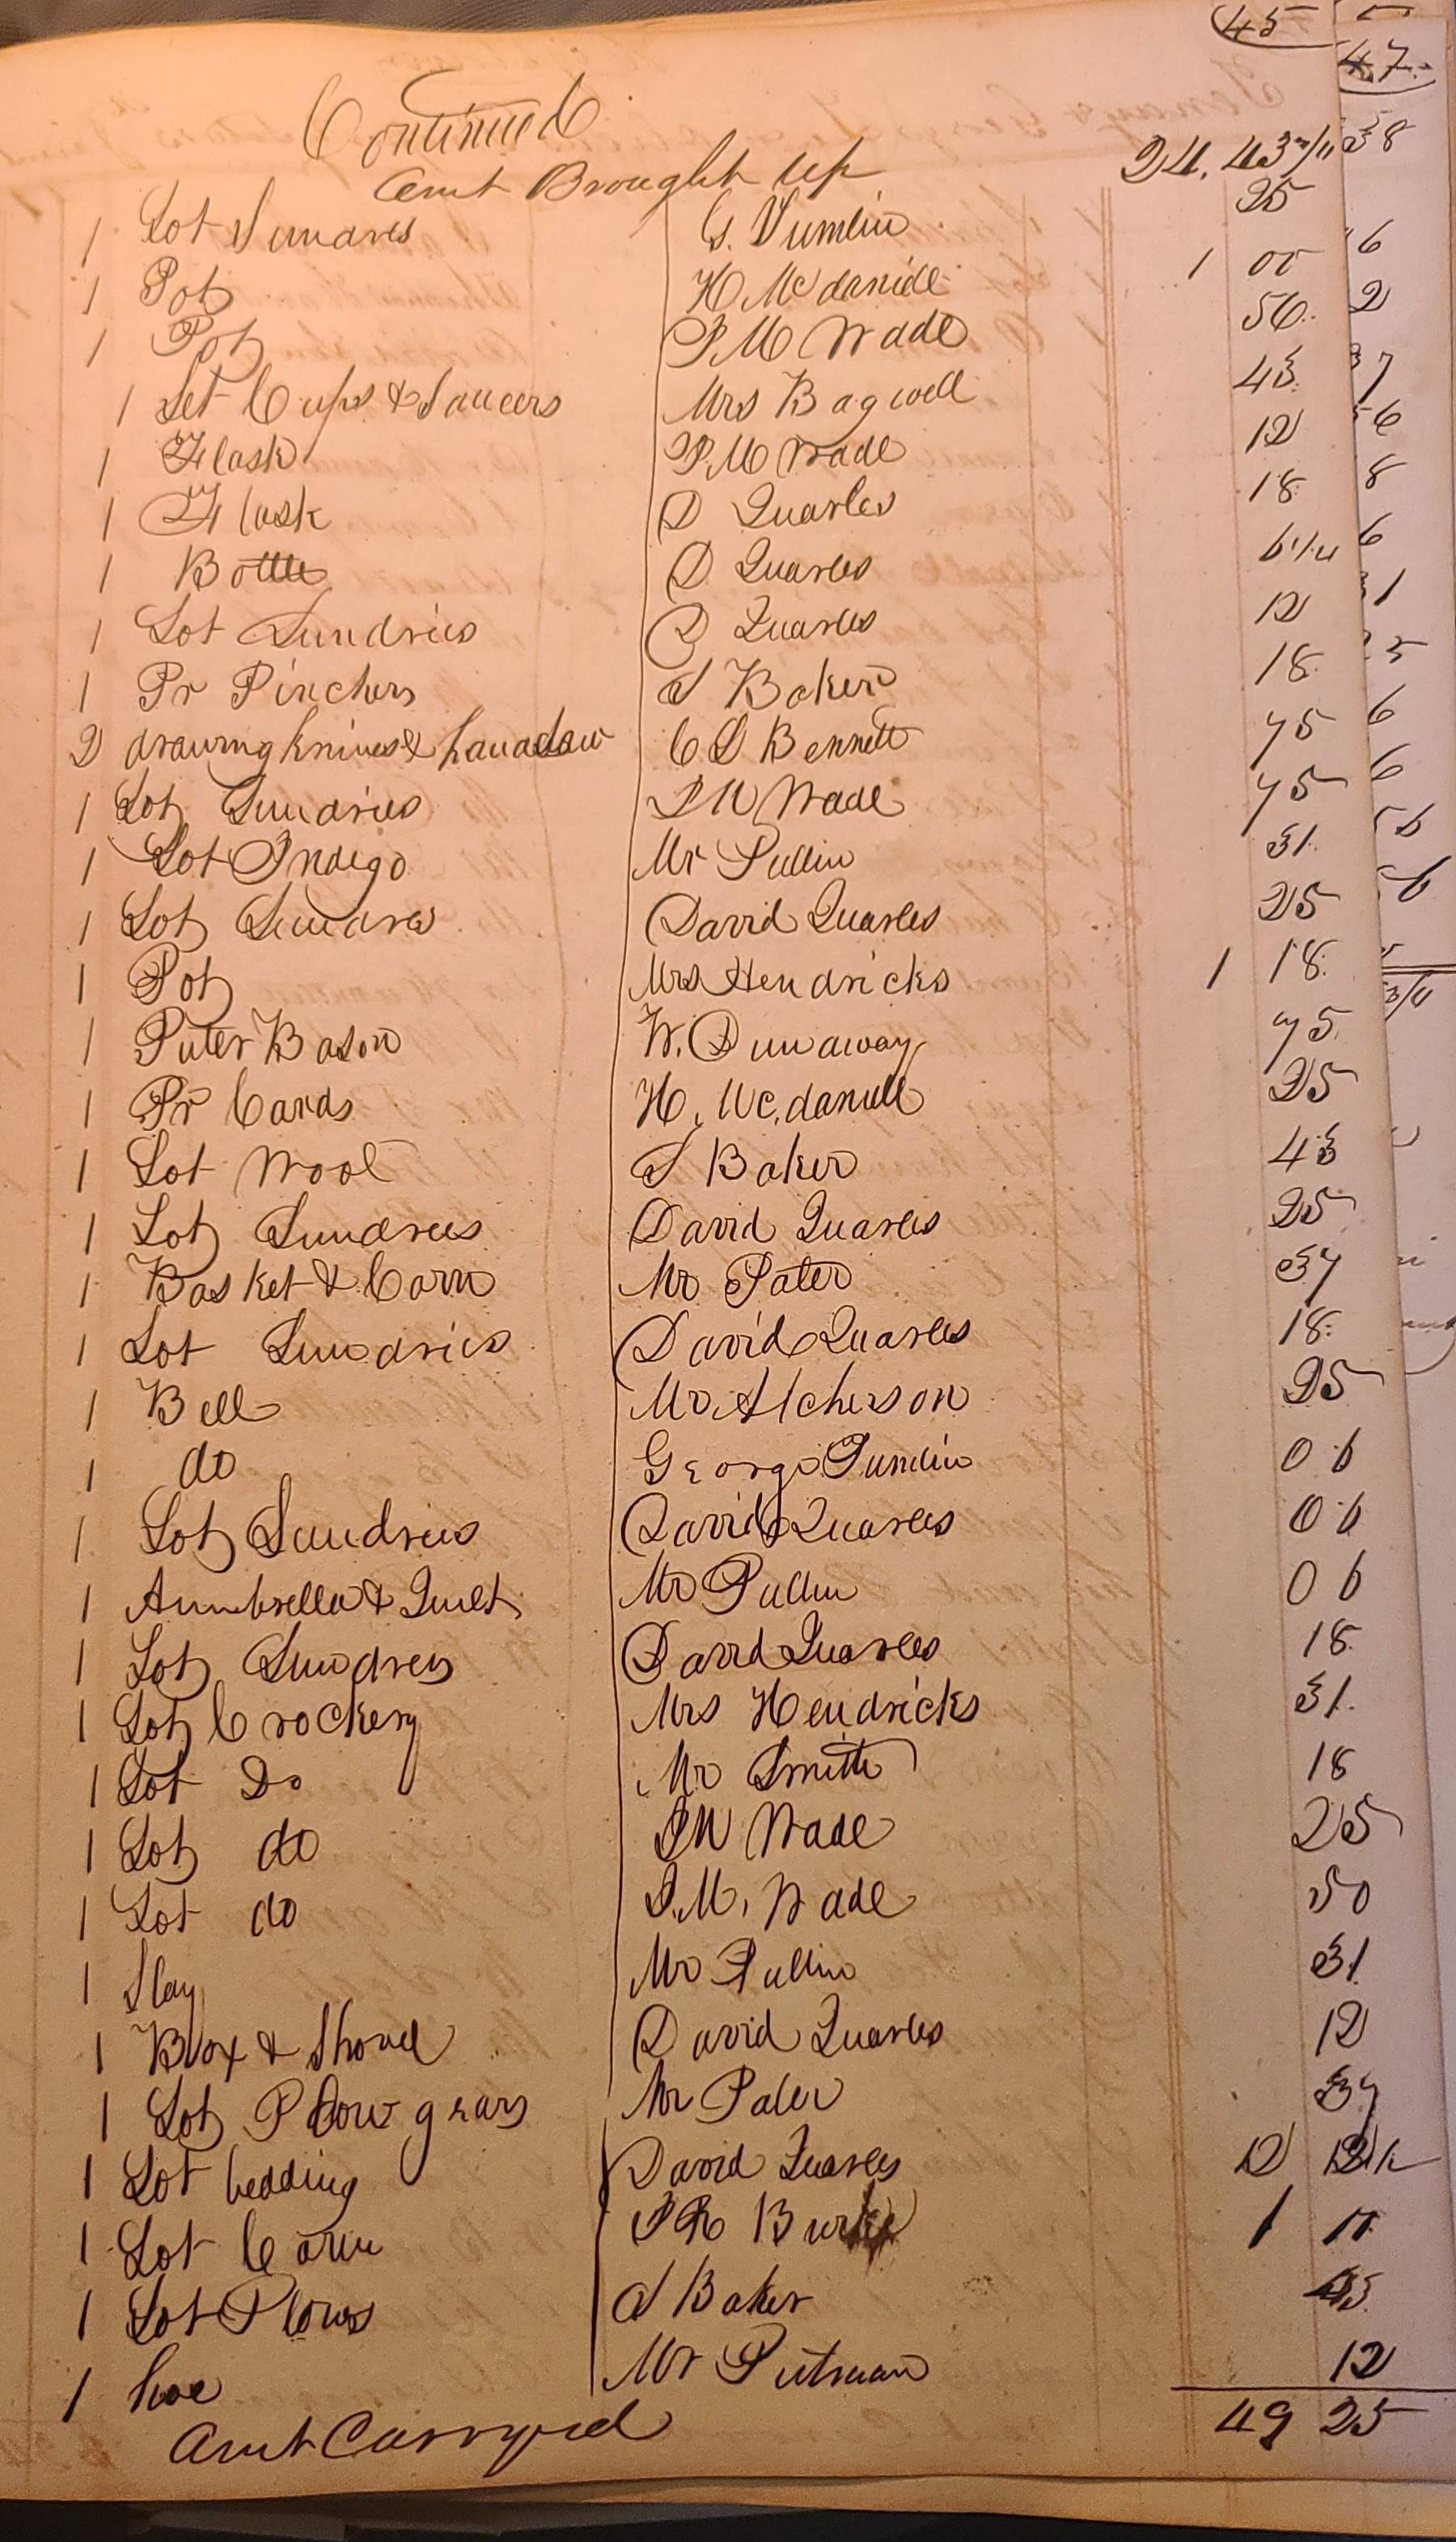 45
Continued
Amt Brought up 24.43 3/4
1 Lot Sundres G. Tumlin 25
1 Pot H McDaniell 1 00
1 Pot P M Wade 50
1 Set Cups & Saucers Mrs Bagwell 43
1 Flask P. M Wade 12
1 Flask D Quarles 18
1 Bottle D. Quarles 6 1/4
1 Lot Sundries D Quarles 12
1 Pr Pinchers S Baker 18
2 drawing knives & handsaw C D Bennett 75
1 Lot Sundries P M Wade 75
1 Lot Indigo Mr Pullin 31
1 Lot Sundres David Quarles 25
1 Pot Mrs Hendricks 1 18
1 Puter Bason W. Dunaway 75
1 Pr Cards H. McDaniell 25
1 Lot Wool S Baker 43
1 Lot Sundrees David Quarles 25
1 Basket & Corn Mr Pater 37
1 Lot Sundries David Quarles 18
1 Bell Mr Atcherson 25
1 do George Tumlin 06
1 Lot Sundries David Quarles 06
1 Aumbrella & Quilt Mr Pullin 06
1 Lot Sundres David Quarles 18
1 Lot Crockery Mrs Hendricks 31
1 Lot Do Mr Smith 18
1 Lot do P M Wade 25
1 Lot do P. M. Wade 50
1 Slay Mr Pullin 31
1 Box & Shovel David Quarles 12
1 Lot Plow gears Mr Pater 37
1 Lot bedding David Quarles 12
1 Lot Corn P R Burke 1
1 Lot Plows S Baker
1 hoe Mr Putman 12
Amt Carryed 49 25
47